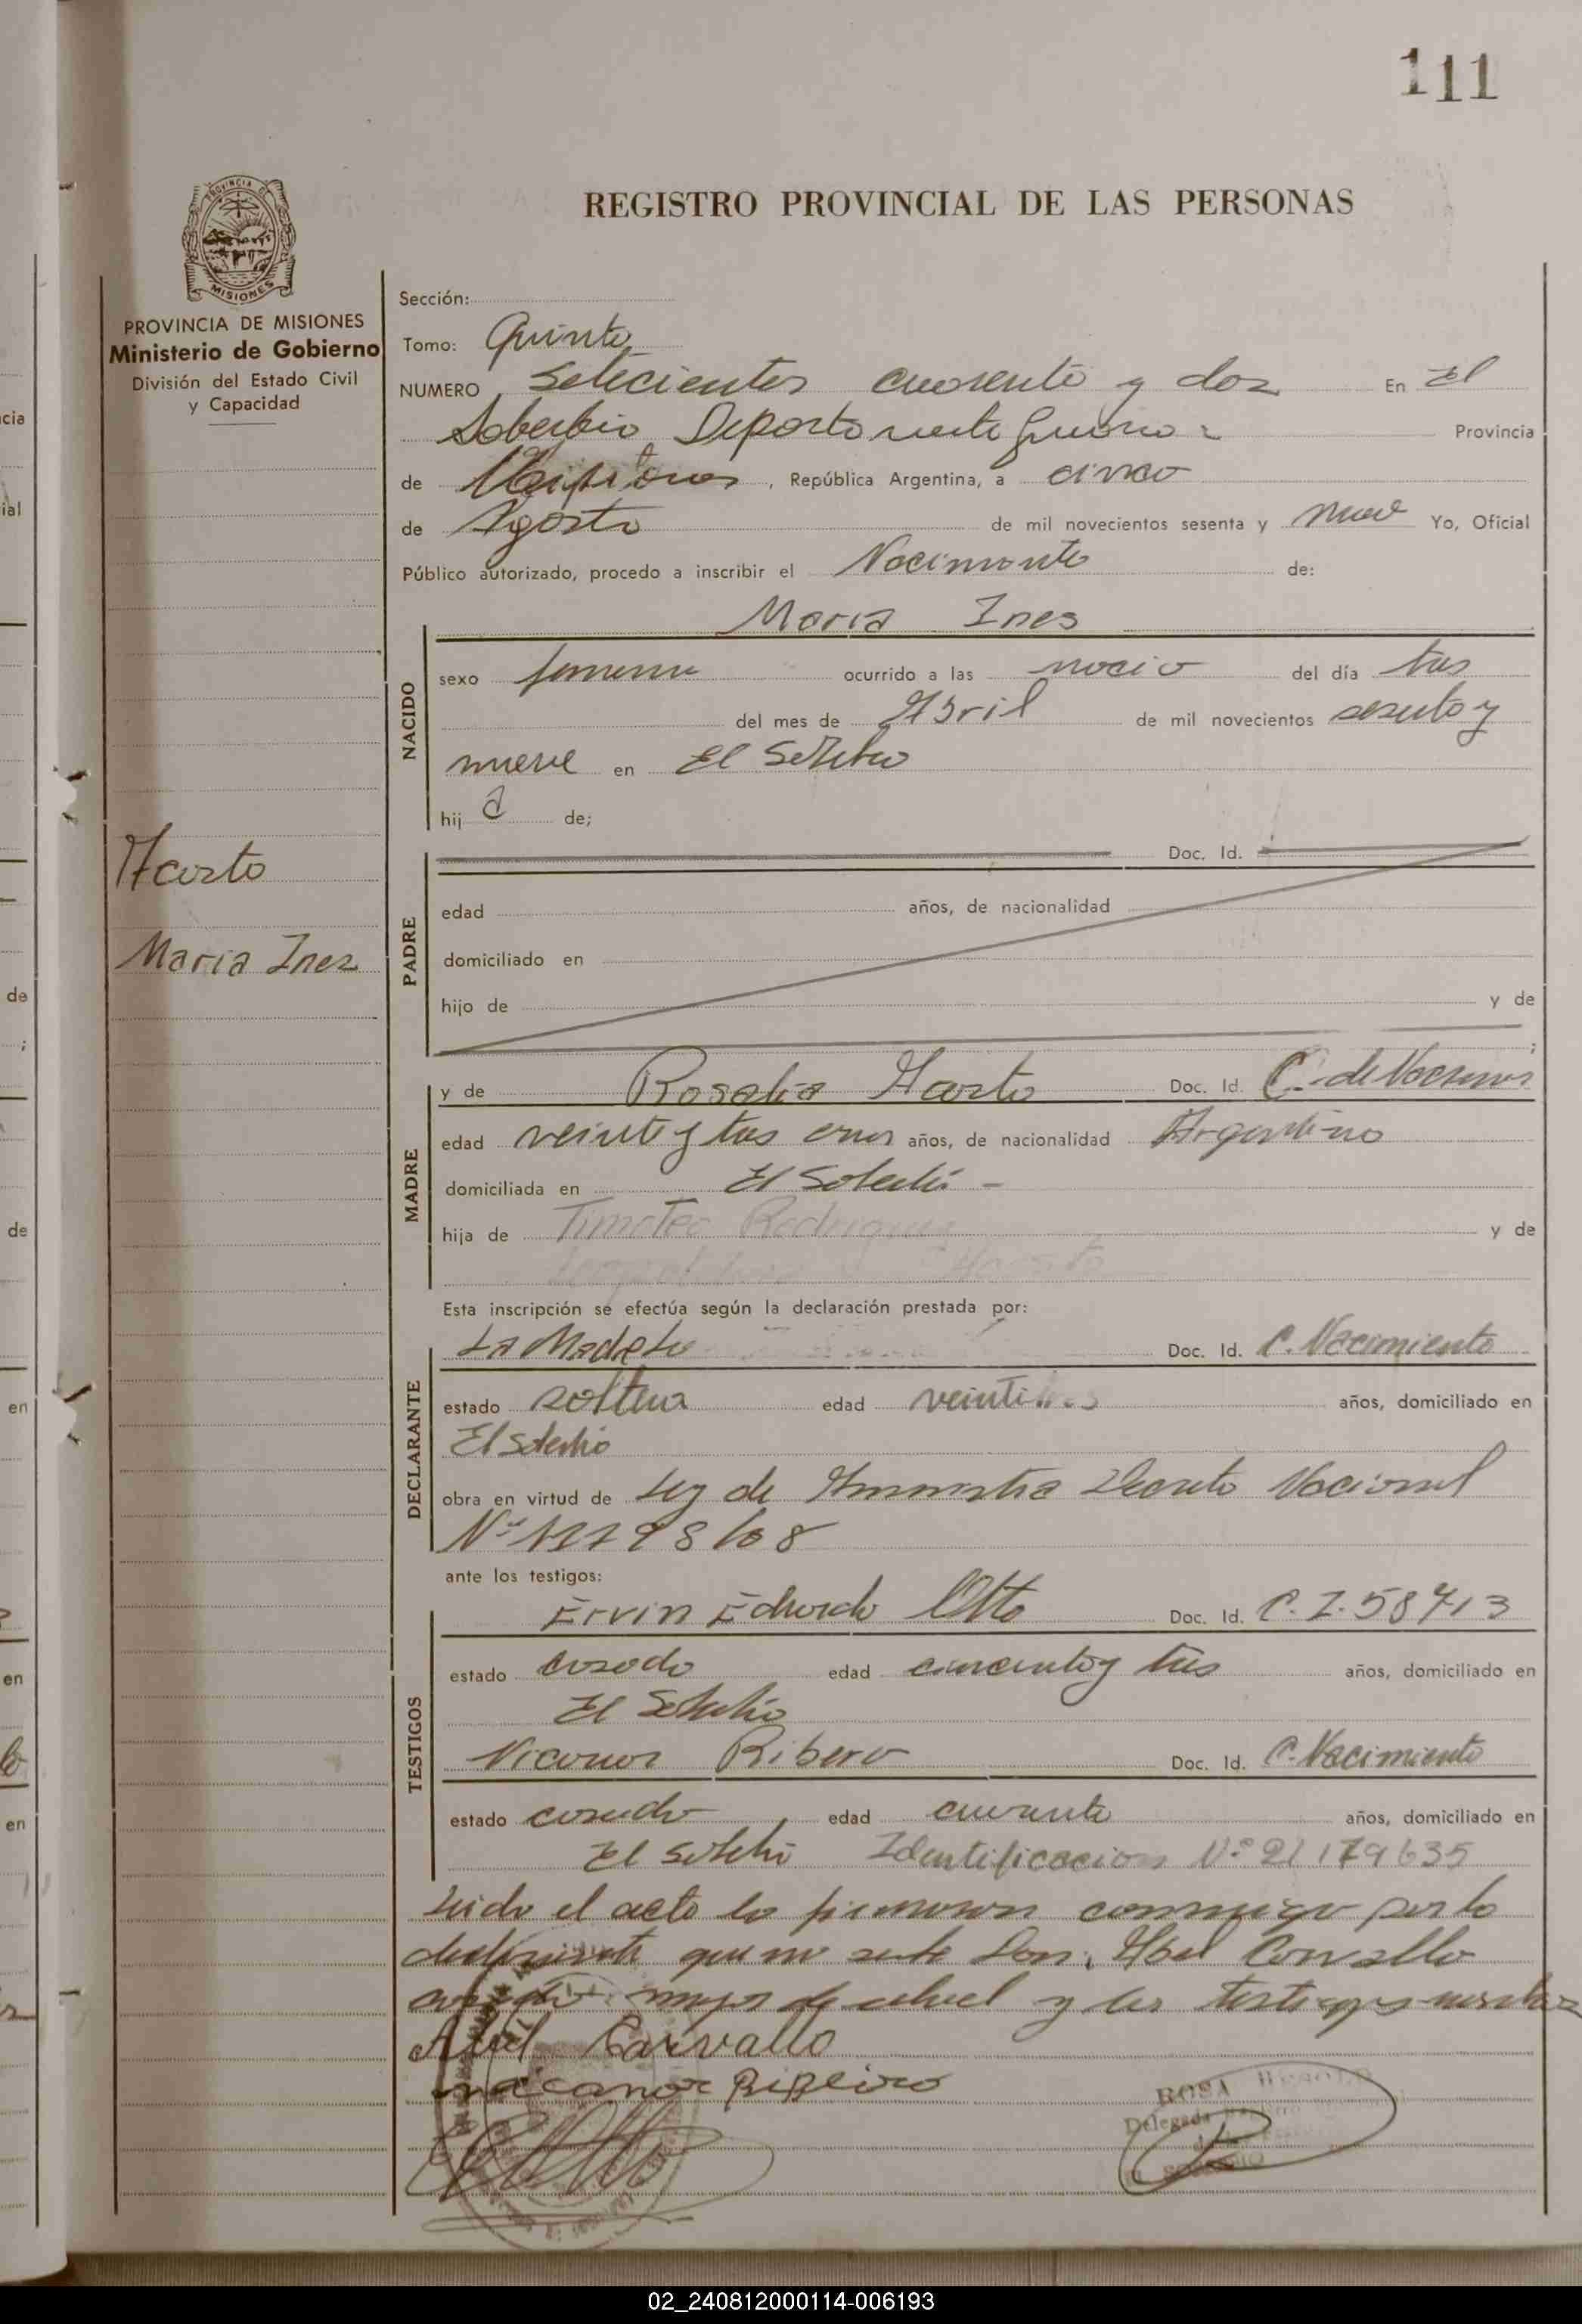 111
REGISTRO PROVINCIAL DE LAS PERSONAS
PROVINCIA DE MISIONES
Ministerio de Gobierno
División del Estado Civil
y Capacidad
Sección:
Tomo: Quinto
NUMERO Setecientos cuarenta y dos En El
Soberbio Departo Provincia
de Misiones, República Argentina, a cinco
de Agosto de mil novecientos sesenta y nueve Yo, Oficial
Público autorizado, procedo a inscribir el Nacimiento de:
Maria Ines
NACIDO
sexo femenino ocurrido a las del día tres
del mes de Abril de mil novecientos sesenta y
nueve en El Soberbio
hij a de;
Acosta
Maria Ines
PADRE
Doc. Id.
edad años, de nacionalidad
domiciliado en
hijo de y de
;
MADRE
y de Rosalia Acosta Doc. Id. C. de Nacimien
edad veinte y tres años años, de nacionalidad Argentina
domiciliada en El Soberbio -
hija de Timoteo Rodriguez y de
Acosta
Esta inscripción se efectúa según la declaración prestada por:
DECLARANTE
La Madre Doc. Id. C. Nacimiento
estado soltera edad veintitres años, domiciliado en
El Soberbio
obra en virtud de Ley de Amnistia Decreto Nacional
ante los testigos:
TESTIGOS
Ervin Eduardo Otto Doc. Id. C. I. 58413
estado casado edad cincuenta y tres años, domiciliado en
El Soberbio
Nicanor Ribero Doc. Id. C. Nacimiento
estado casado edad cuarenta años, domiciliado en
El Soberbio Identificacion Nº 21179635
Leido el acta la firmaron conmigo por la
declarante que no sabe Don. Abel Carvallo
mayor de edad y los testigos
Abel Carvallo
nicanor Ribeiro
ROSA
Delegada
EL SOBERBIO
02_240812000114-006193